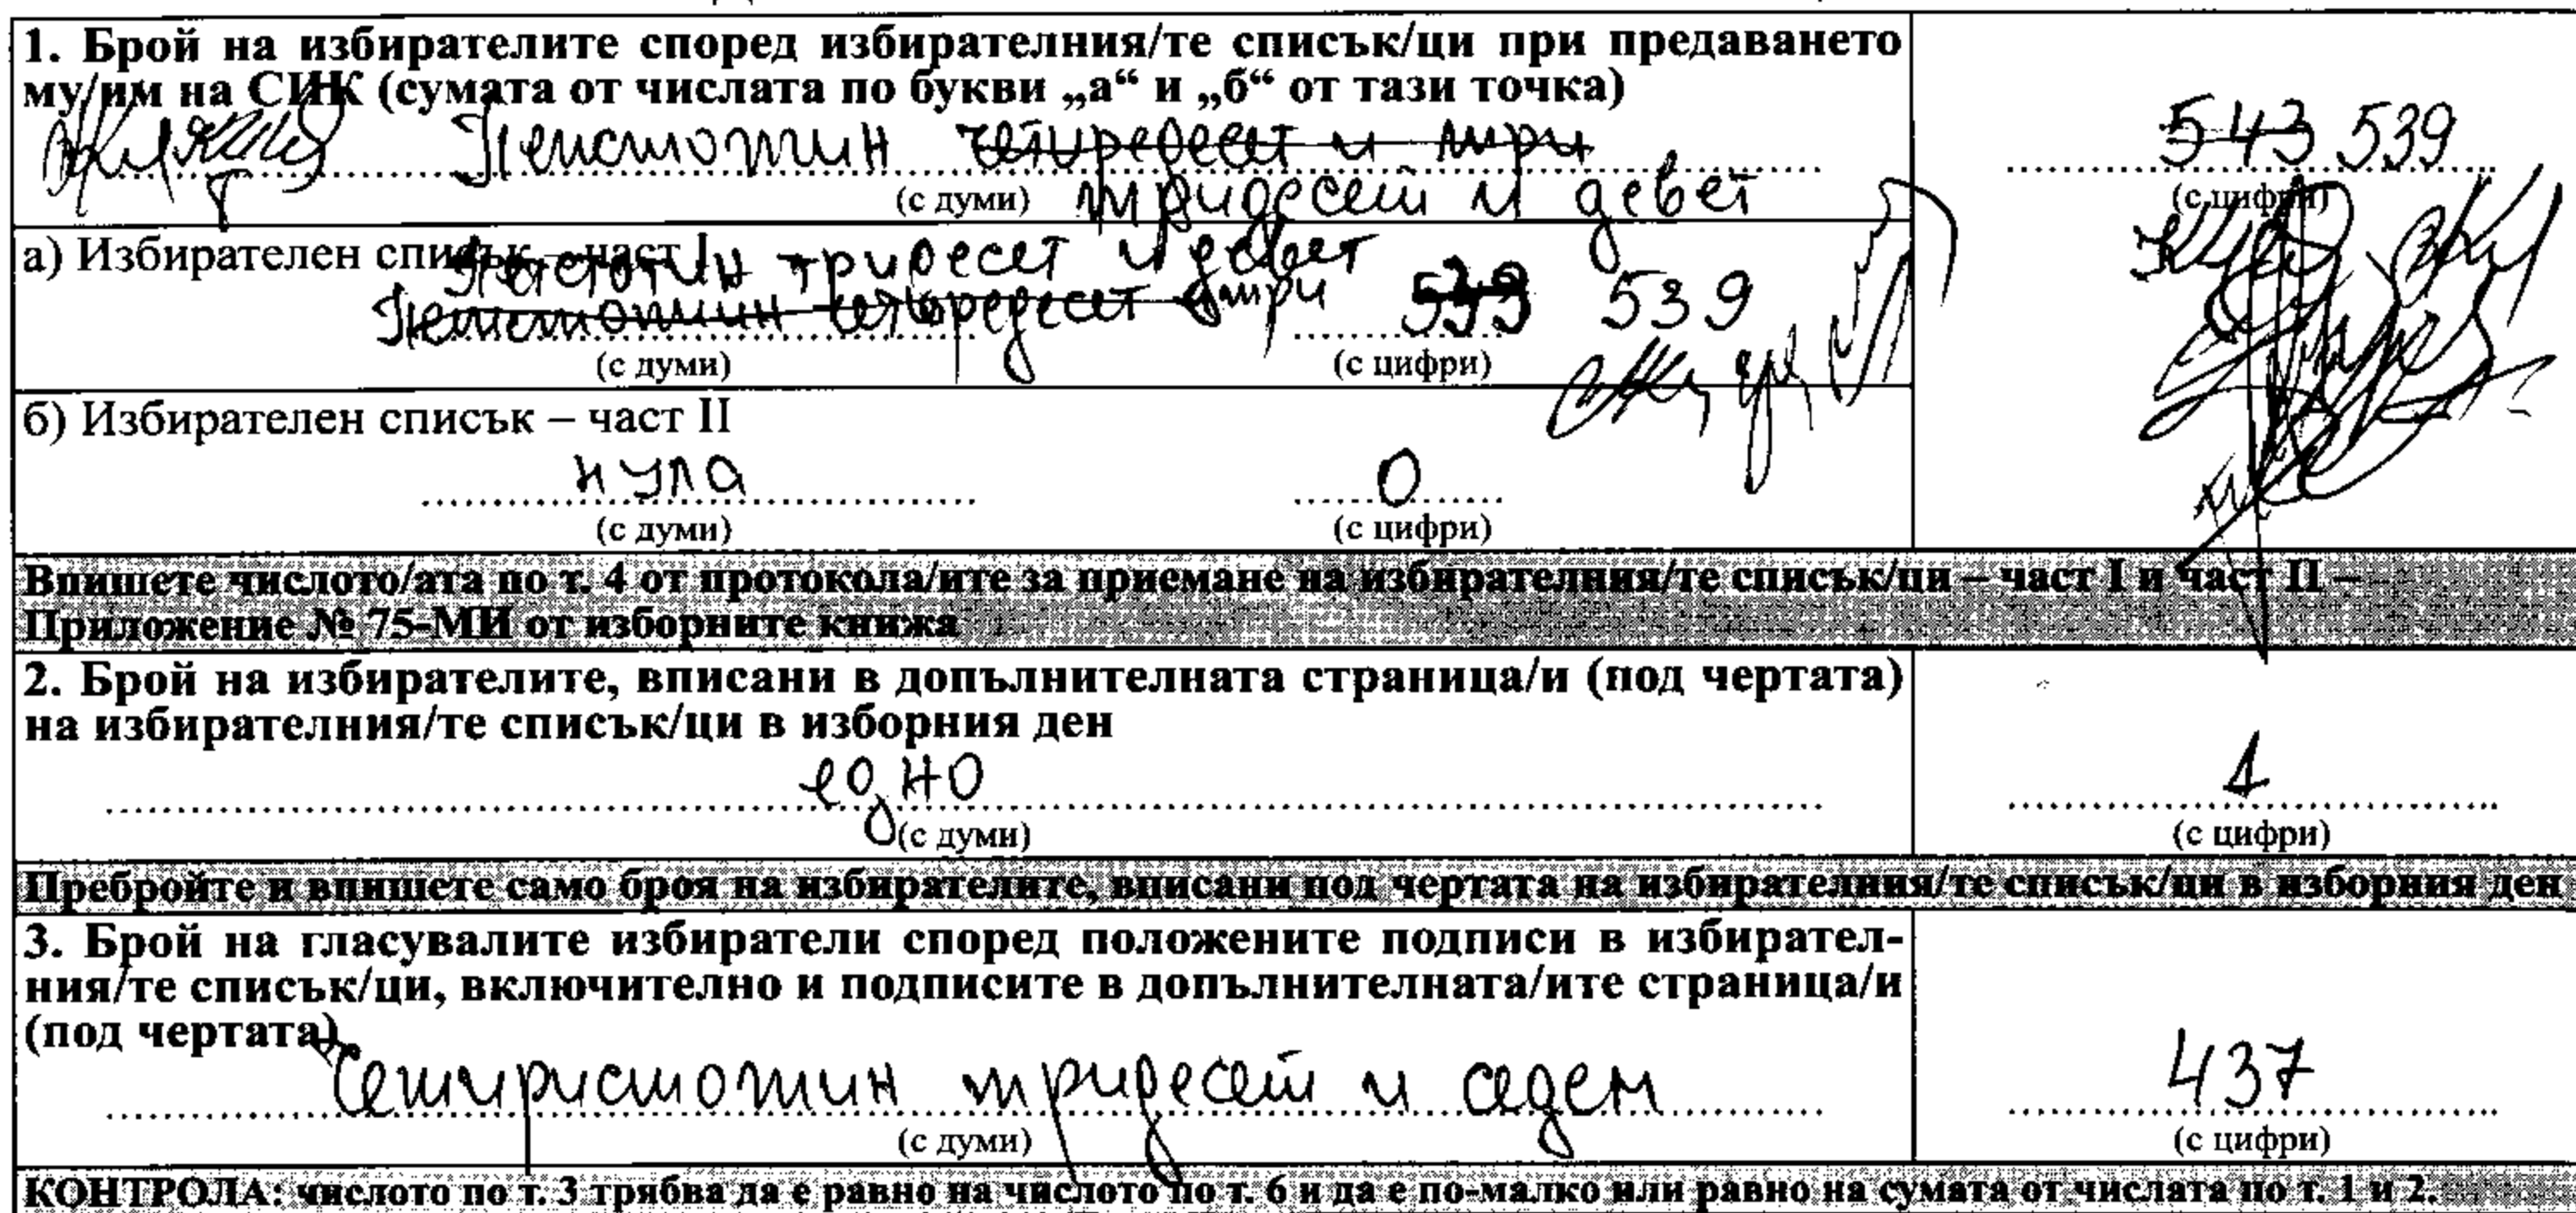 1. Брой на избирателите според избирателния/те списък/ци при предаването
му/им на СИК (сумата от числата по букви „а“ и „б“ от тази точка)
Петстотин четиредесет и три 543 539
(с думи) тридесет и девет (с цифри)
а) Избирателен списък – част I
Петстотин тридесет и девет
Петстотин четиредесет и три 539
(с думи) (с цифри)
б) Избирателен списък – част II
нула 0
(с думи) (с цифри)
Впишете числото/ата по т. 4 от протокола/ите за приемане на избирателния/те списък/ци – част I и част II –
Приложение № 75-МИ от изборните книжа
2. Брой на избирателите, вписани в допълнителната страница/и (под чертата)
на избирателния/те списък/ци в изборния ден
едно 1
(с думи) (с цифри)
Пребройте и впишете само броя на избирателите, вписани под чертата на избирателния/те списък/ци в изборния ден
3. Брой на гласувалите избиратели според положените подписи в избирател-
ния/те списък/ци, включително и подписите в допълнителната/ите страница/и
(под чертата)
Четиристотин тридесет и седем 437
(с думи) (с цифри)
КОНТРОЛА: числото по т. 3 трябва да е равно на числото по т. 6 и да е по-малко или равно на сумата от числата по т. 1 и 2.